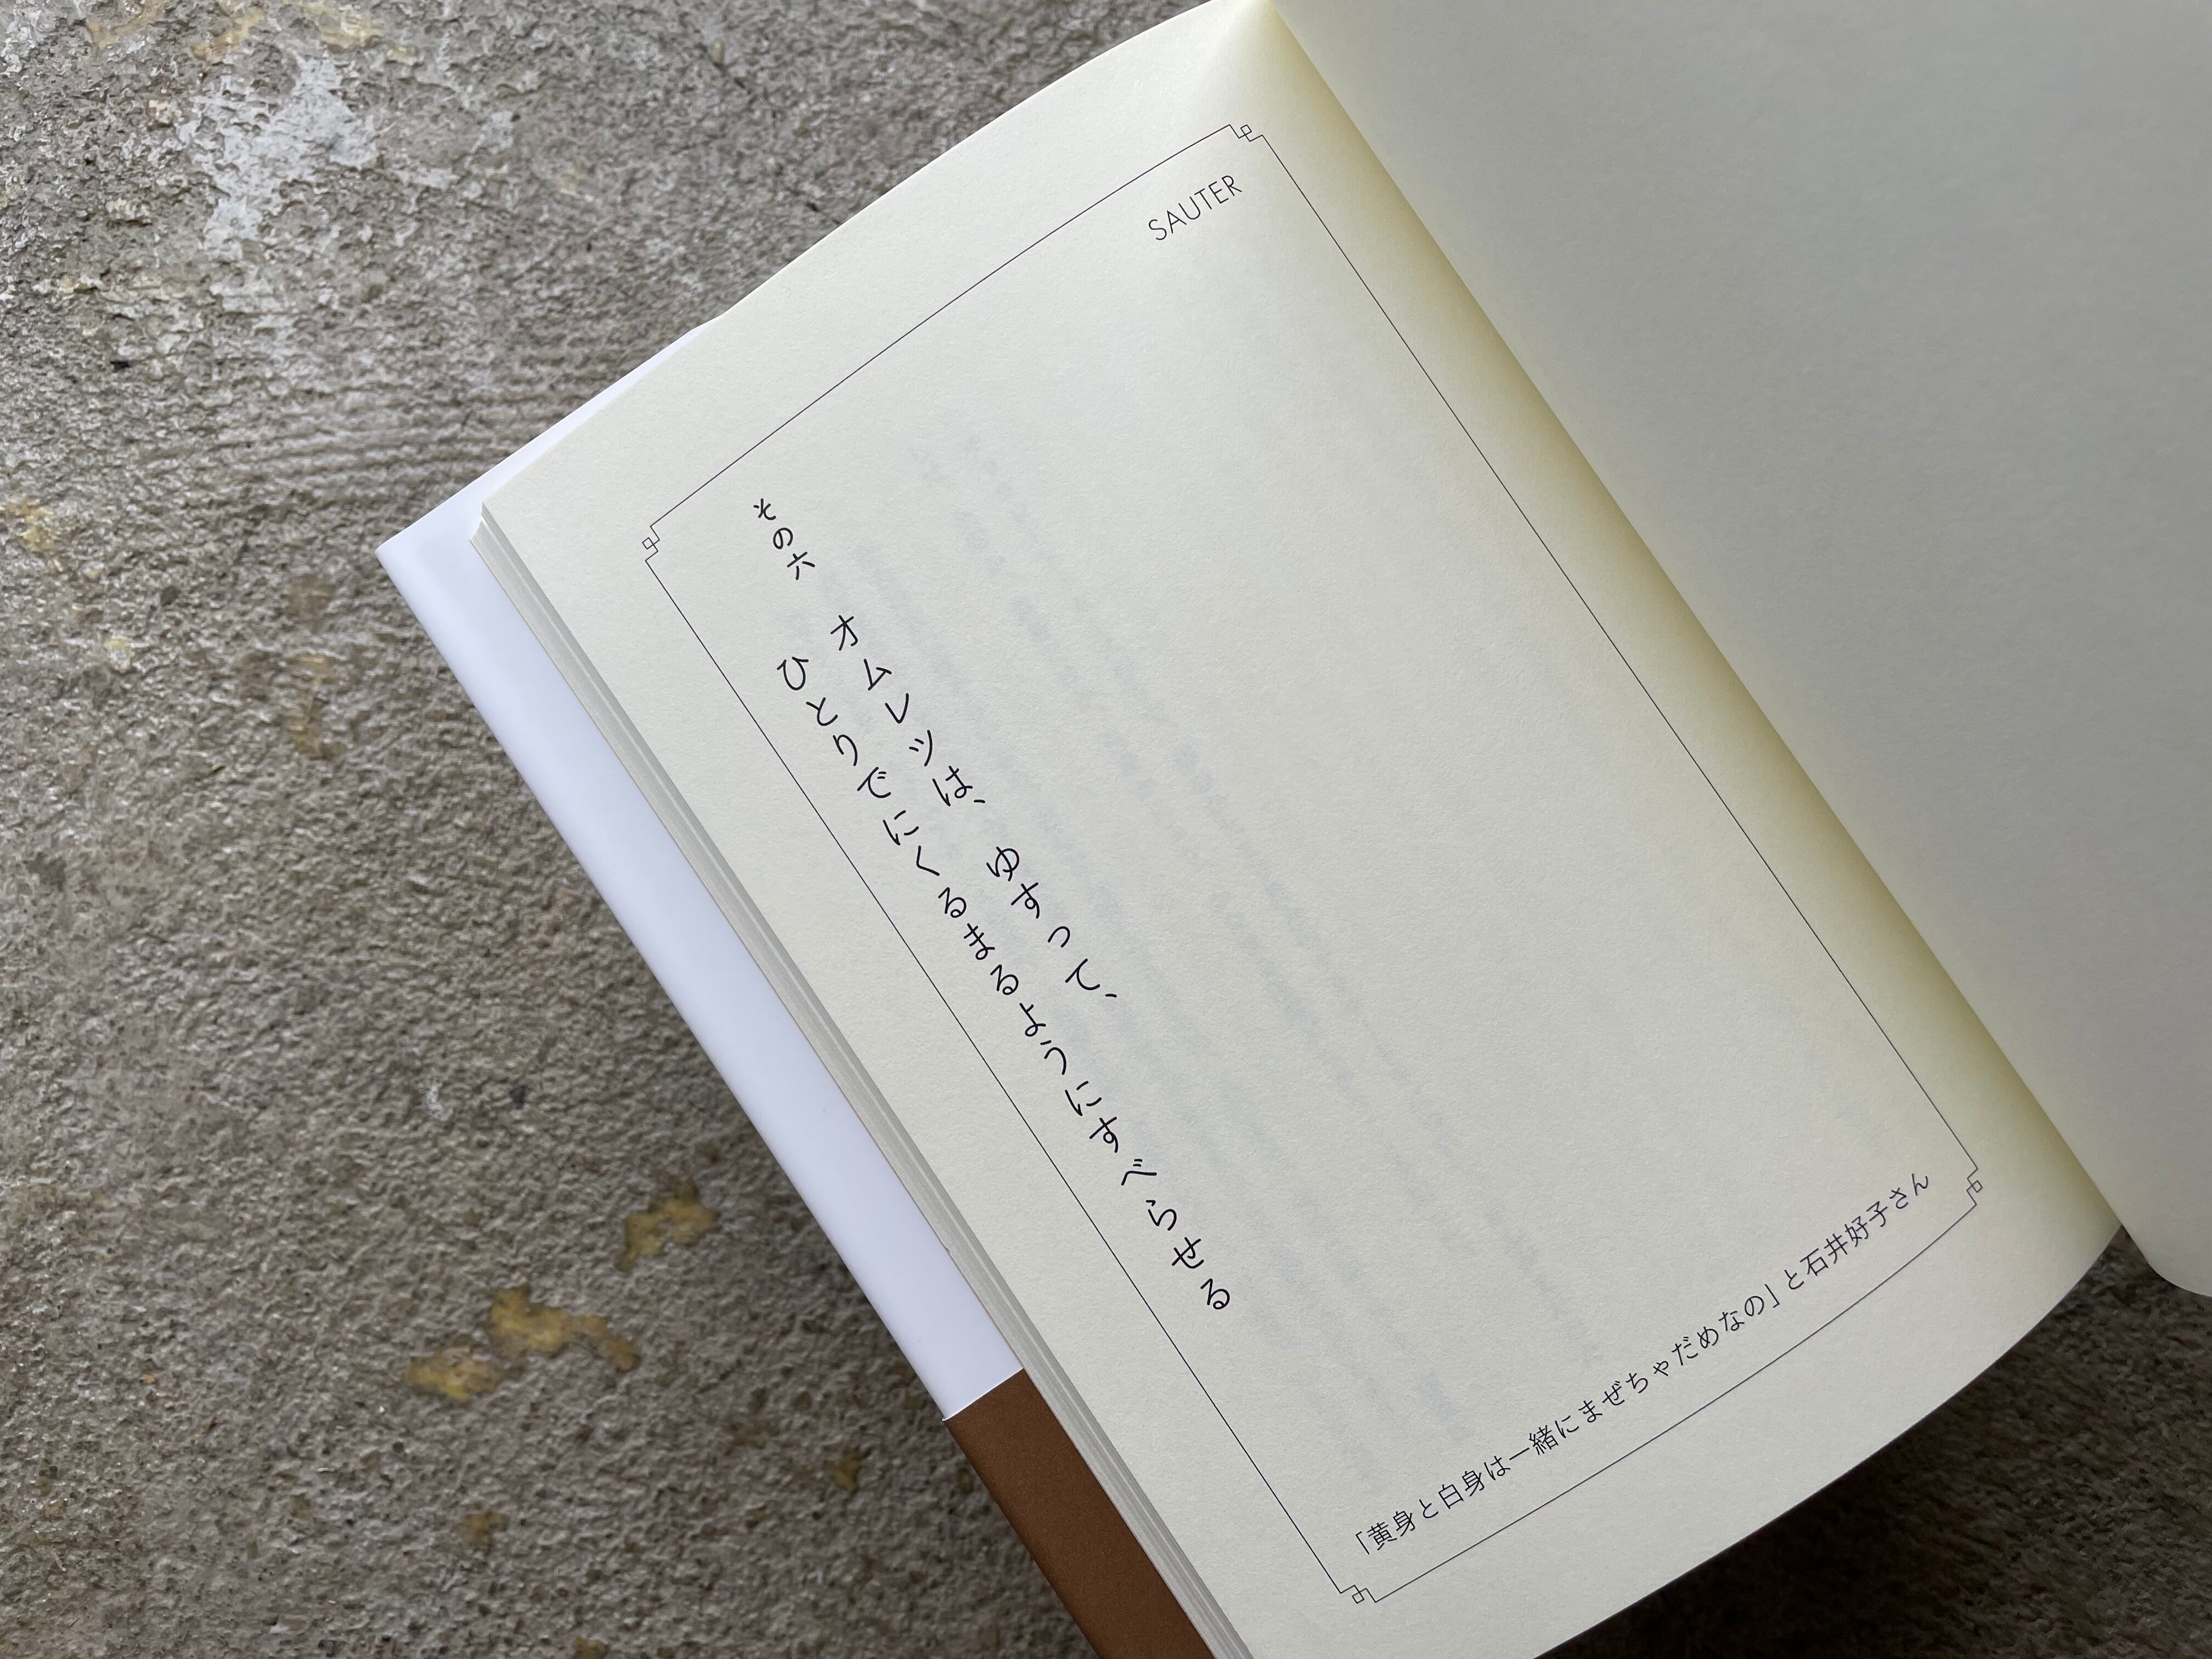 SAUTER
その六
オムレツは、ゆすって、
ひとりでにくるまるようにすべらせる
「黄身と白身は一緒にまぜちゃだめなの」と石井好子さん